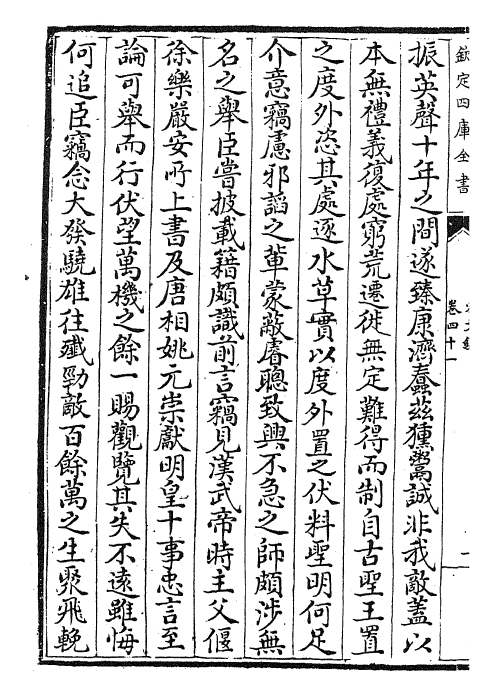 欽定四庫全書
卷四十一
振英聲十年之間遂臻康濟蠢茲獯鬻誠非我敵蓋以
本無禮義復處窮荒遷徙無定難得而制自古聖王置
之度外恣其處逐水草實以度外置之伏料聖明何足
介意竊慮邪謟之軰蒙蔽睿聰致興不急之師頗涉無
名之舉臣嘗披載籍頗識前言竊見漢武帝時主父偃
徐樂嚴安所上書及唐相姚元崇獻明皇十事忠言至
論可舉而行伏望萬機之餘一賜觀覽其失不遠雖悔
何追臣竊念大發驍雄往殲勁敵百餘萬之生聚飛輓